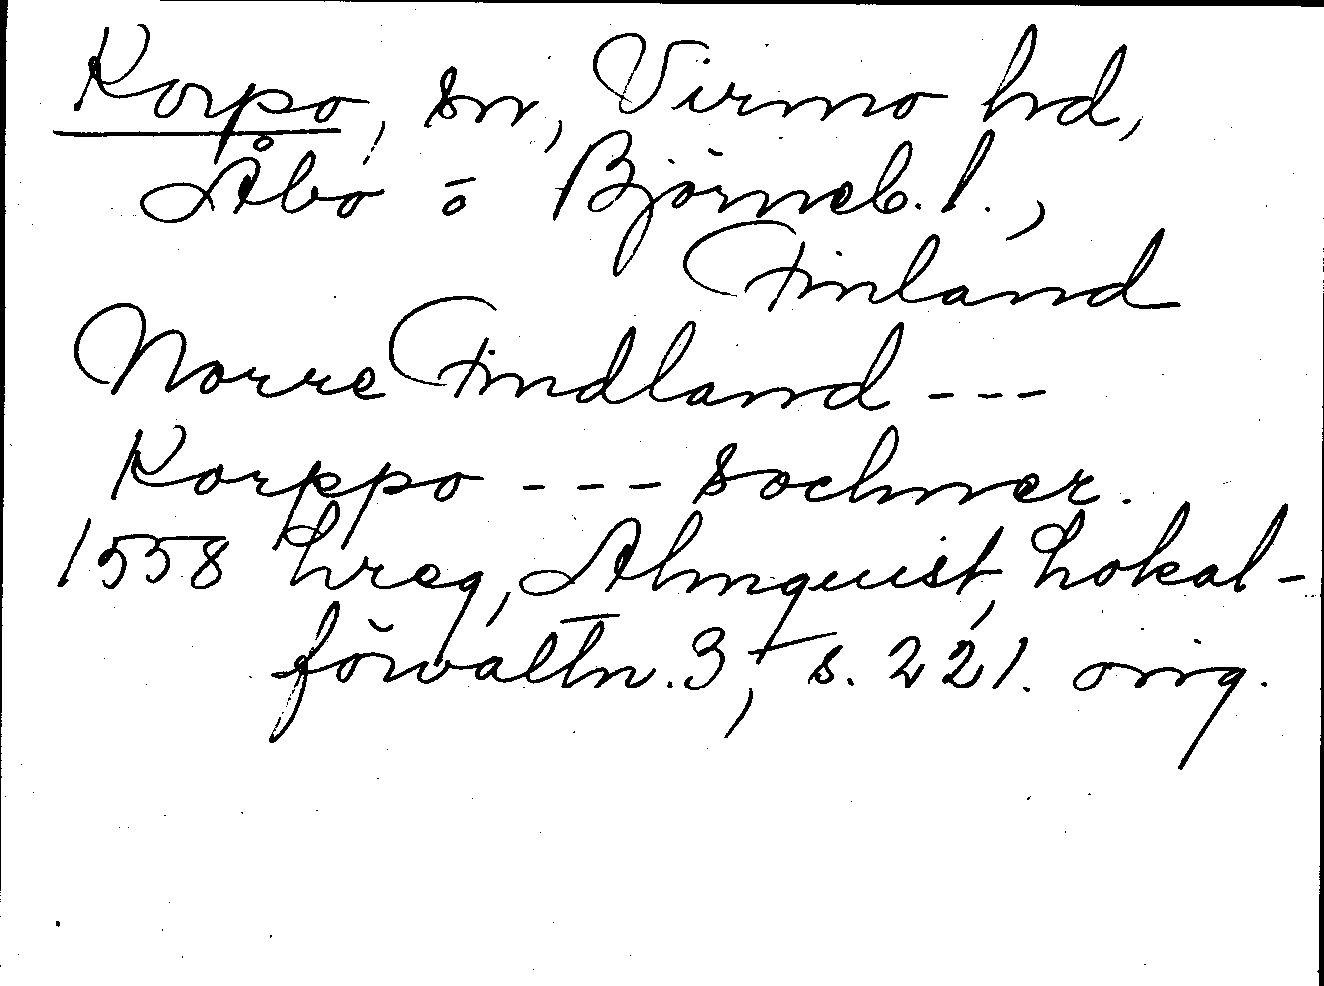 Korpo, sn, Virmo hd,
Åbo o Björneb. l.,
Finland
Norre Findland ---
Korppo --- sochner.
1558 Lreg, Almquist, Lokal-
förvaltn. 3, s. 221. orig.